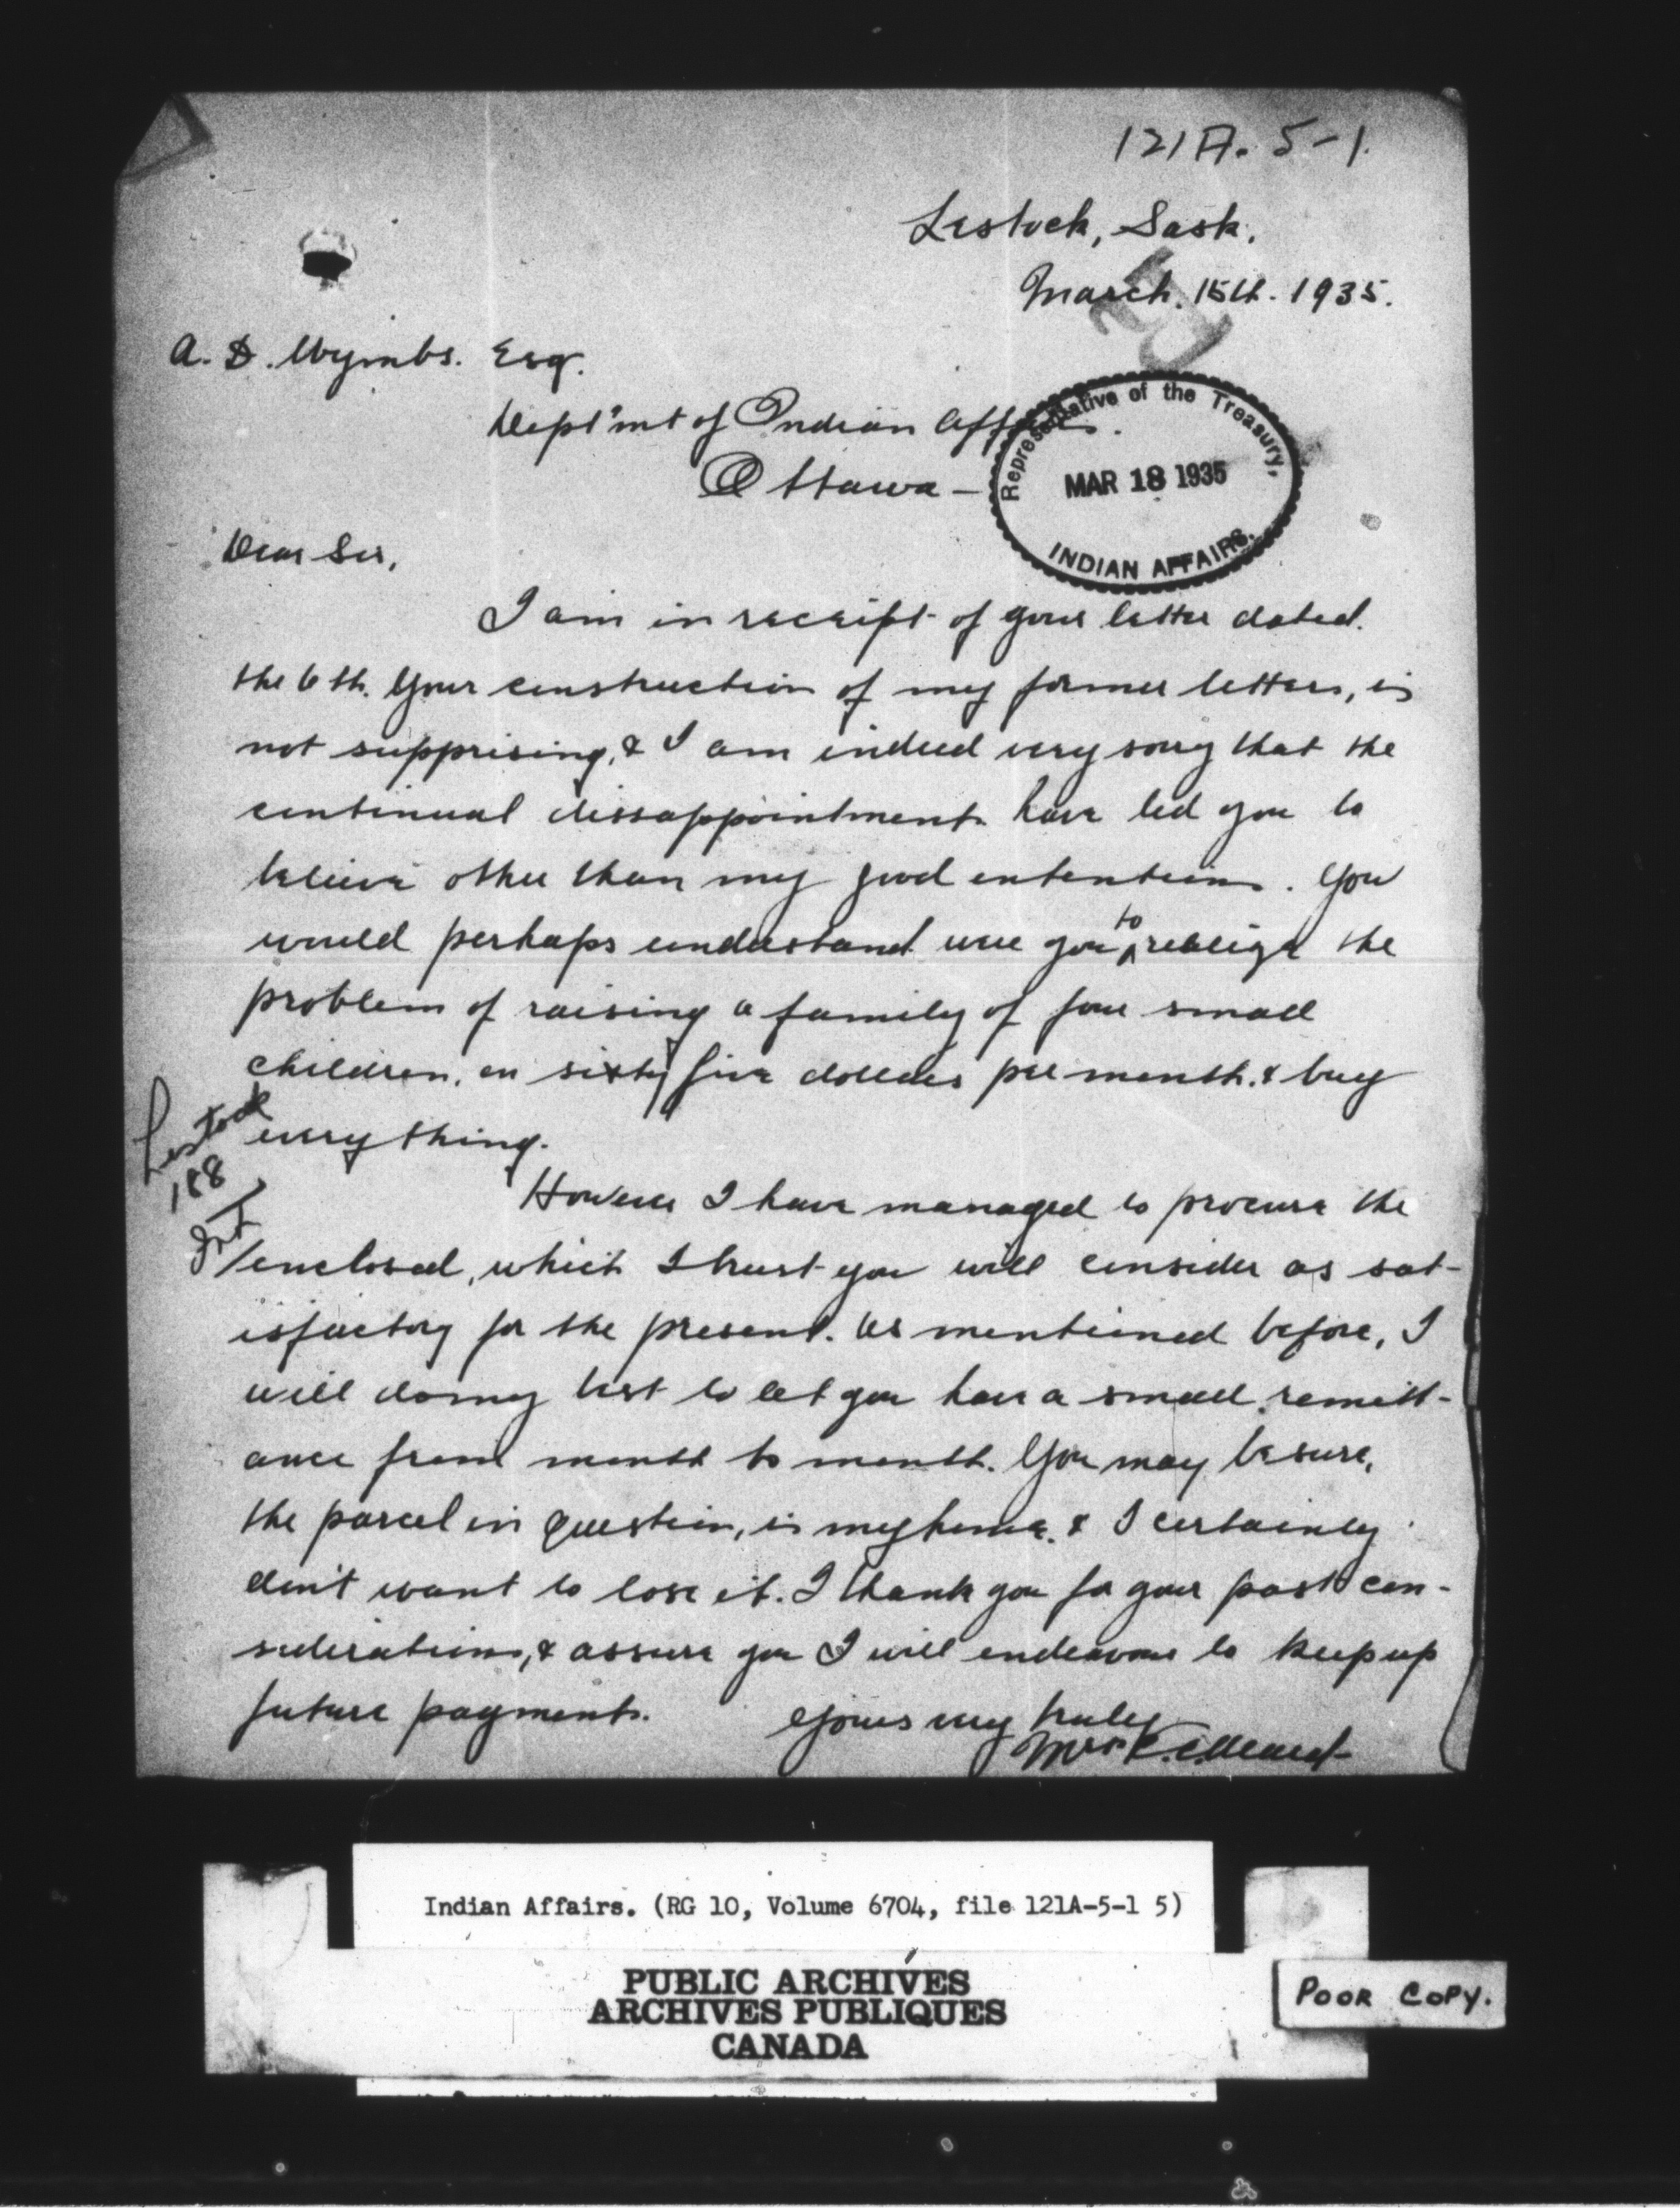 121A. 5-1.
Lestock, Sask.
March. 15th. 1935.
A. D. Wymbs. Esq.
Dept'mt of Indian Affairs.
Ottawa —
Representative of the Treasury,
MAR 18 1935
INDIAN AFFAIRS.
Dear Sir,
I am in receipt of your letter dated.
the 6th. Your construction of my former letters, is
not supprising, & I am indeed very sorry that the
continual dissappointments have led you to
believe other than my good intentions. You
would perhaps understand were you to realize the
problem of raising a family of four small
children, on sixty five dollars per month. & buy
everything.
Lestock
188
Int
However I have managed to procure the
enclosed, which I trust you will consider as sat-
isfactory for the present. As mentioned before, I
will do my best to let you have a small remitt-
ance from month to month. You may be sure,
the parcel in question, is my home. & I certainly
don't want to lose it. I thank you for your past con-
siderations, & assure you I will endeavour to keep up
future payments.
Yours very truly
Indian Affairs. (RG 10, Volume 6704, file 121A-5-1 5)
PUBLIC ARCHIVES
ARCHIVES PUBLIQUES
CANADA
POOR COPY.